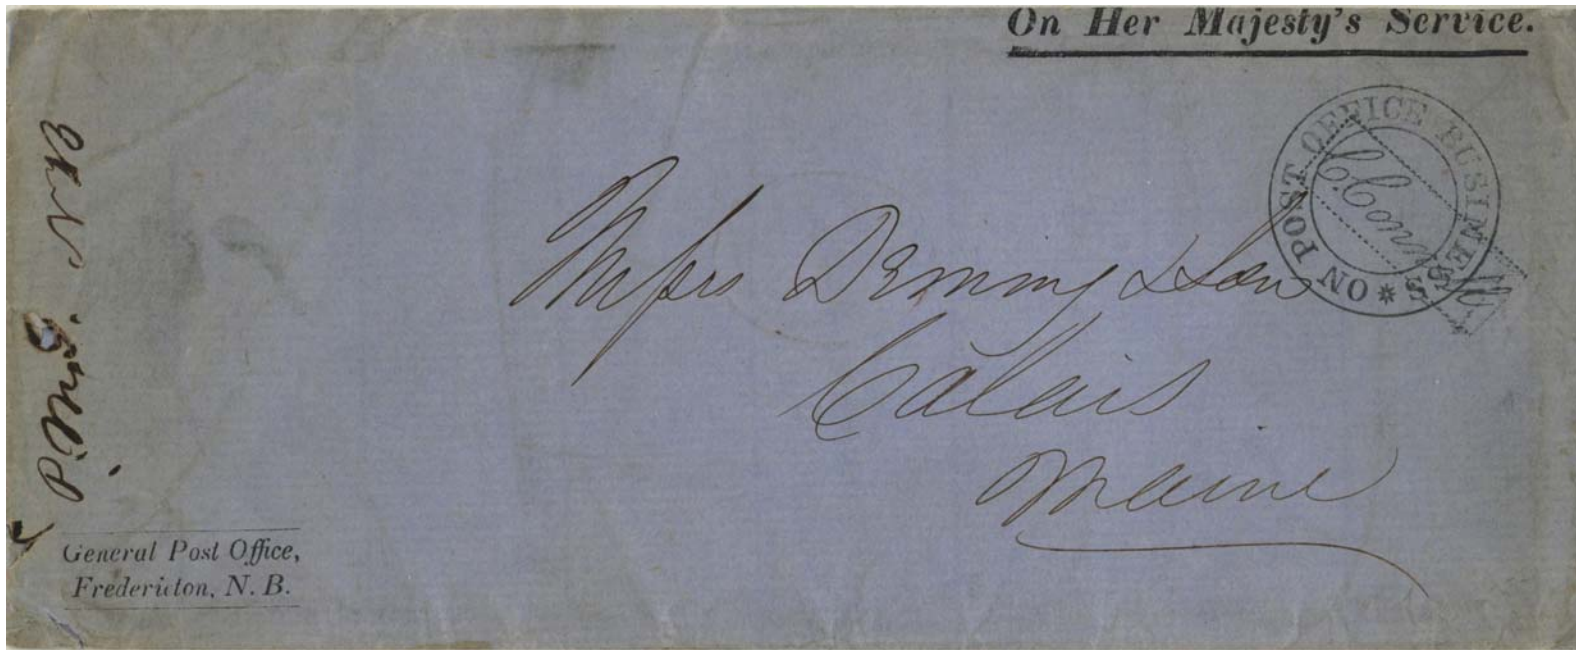 On Her Majesty's Service.
ON POST OFFICE BUSINESS
C. Connell
Messrs Demmy & Son
Calais
Maine
General Post Office,
Fredericton, N. B.